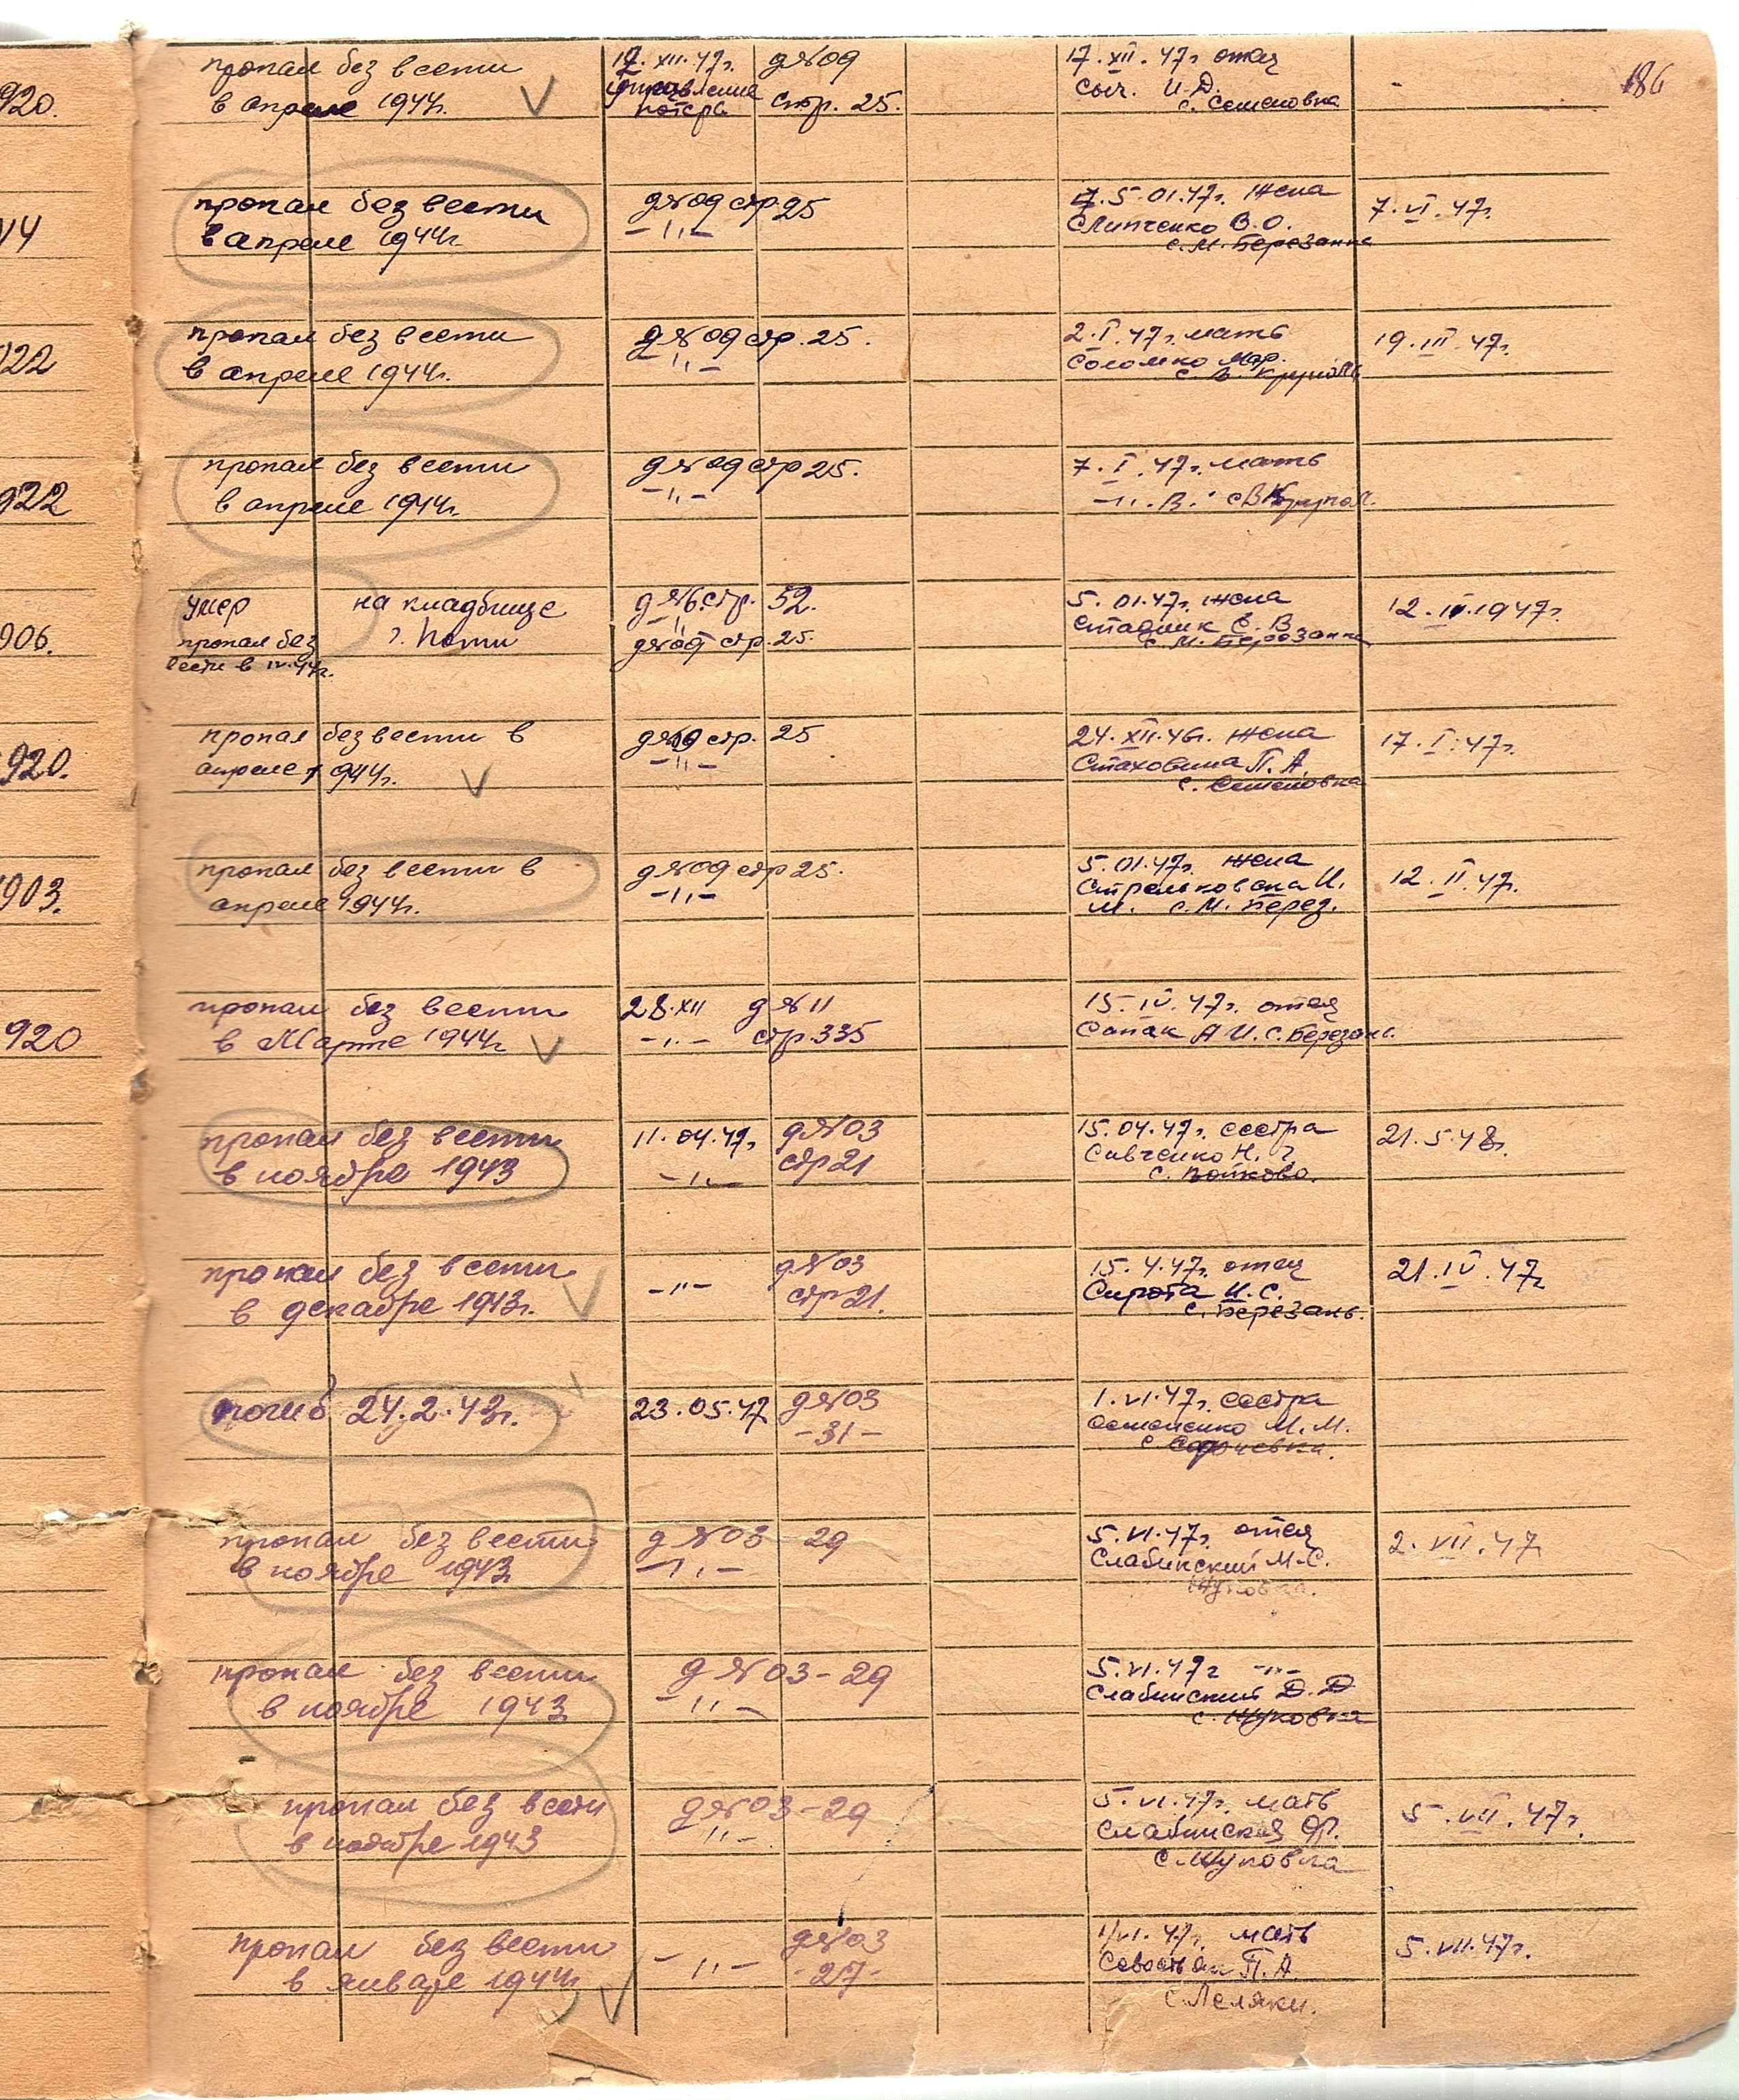 186
920.
пропал без вести
в апреле 1944г.
17.XII.47г.
управление
потерь
д№09
стр. 25.
17.XII.47г отец
Сыч. И.Д.
с. Семеновка
-
14
пропал без вести
в апреле 1944г.
д№09 стр 25
-"-
5.01.47г. жена
Слипченко В.О.
с. М. Березанка
7.VI.47г.
922
пропал без вести
в апреле 1944г.
д№09 стр. 25.
-"-
2.I.47г. мать
Соломко Мар.
с. В. Круполь
19.III.47г.
922
пропал без вести
в апреле 1944г.
д№09 стр 25.
-"-
7.I.47г. мать
-"- В. с В Крупол.
906.
умер на кладбище
г. Поти
пропал без
вести в IV.44г.
д№6 стр. 52.
-"-
д№09 стр. 25.
5.01.47г. жена
Стадник Е. В
с. М. Березанка
12.IV.1947г.
920.
пропал без вести в
апреле 1944г.
д№09 стр. 25
-"-
24.XII.46г. жена
Стаховина П. А.
с. Семеновка
17.I.47г.
903.
пропал без вести в
апреле 1944г.
д№09 стр 25.
-"-
5.01.47г. жена
М. с. М. Берез.
12.II.47г.
920
пропал без вести
в Марте 1944г
28.XII д№11
-"- стр. 335
15.IV.47г. отец
Сапак А И. с. Березань.
пропал без вести
в ноябре 1943
11.04.47г.
-"-
д№03
стр 21
15.04.47г. сестра
Савченко Н. Г
с. Войково.
21.5.48г.
пропал без вести
в декабре 1943г.
-"-
д№03
стр 21.
15.4.47г. отец
Сирота И. С.
с. Березань.
21.IV.47г
погиб 24.2.43г.
23.05.47
д№03
-31-
1.VI.47г. сестра
Семененко М. М.
пропал без вести
в ноябре 1943
д№03 - 29
-"-
5.VI.47г. отец
Слабинский М.С.
Жуковка.
2.VII.47
пропал без вести
в ноябре 1943
д№03 - 29
-"-
5.VI.47г -"-
Слабинский Д. Д
с. Жуковка
пропал без вести
в ноябре 1943
д№03 - 29
"-
5.VI.47г. мать
Слабинская Ф.
с. Жуковка
5.VII.47г.
пропал без вести
в январе 1944г.
-"-
д№03
-27-
1/VI.47г. мать
П. А.
с. Леляки.
5.VII.47г.